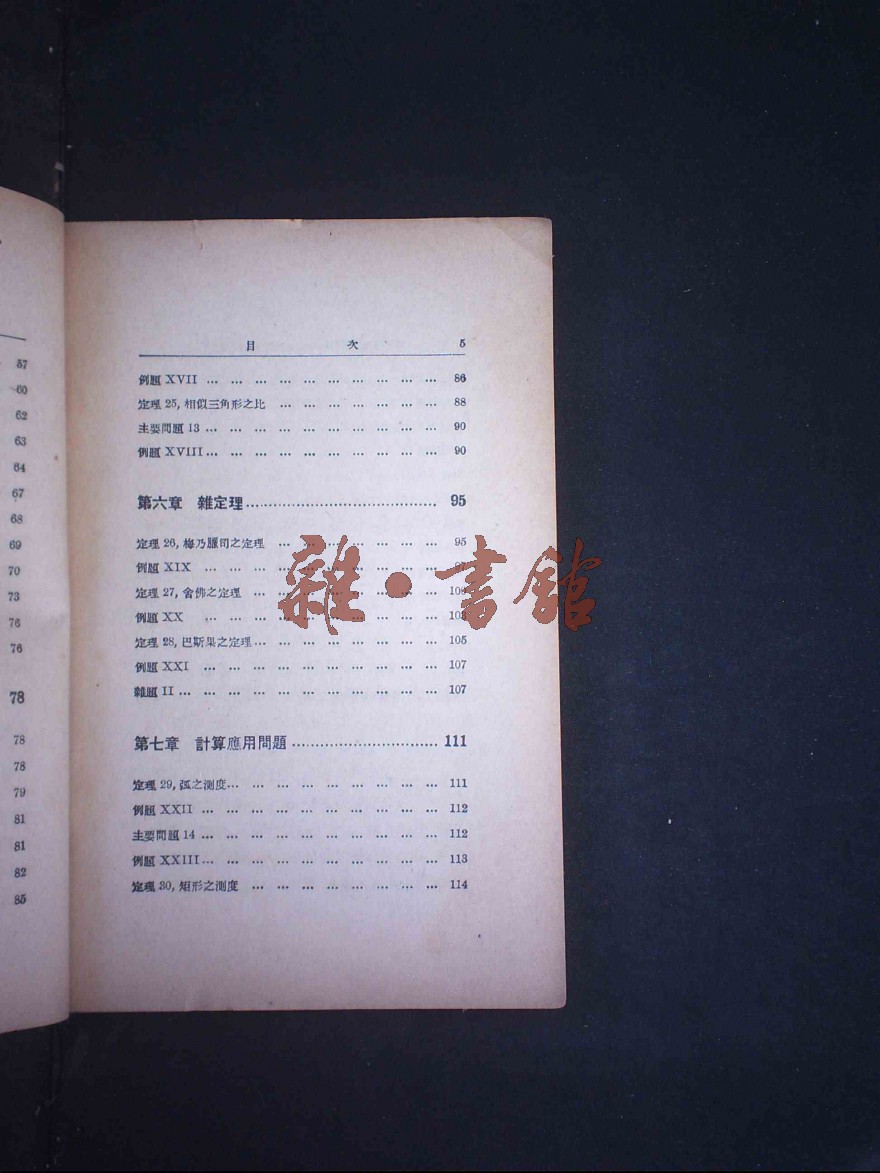 57
60
62
63
64
67
68
69
70
73
76
76
78
78
78
79
81
81
82
85
目 次 5
例題 XVII … … … … … … … … … … 86
定理 25, 相似三角形之比 … … … … … … … 88
主要問題 13 … … … … … … … … … … 90
例題 XVIII … … … … … … … … … … 90
第六章 雜定理 …………………………………… 95
定理 26, 梅乃臘司之定理 … … … … … … … 95
例題 XIX … … … … … … … … …
定理 27, 舍佛之定理 … … … … … … … …
例題 XX … … … … … … … … …
定理 28, 巴斯果之定理 … … … … … … … … 105
例題 XXI … … … … … … … … … … 107
雜題 II … … … … … … … … … … … 107
第七章 計算應用問題 …………………………… 111
定理 29, 弧之測度 … … … … … … … … … 111
例題 XXII … … … … … … … … … … 112
主要問題 14 … … … … … … … … … … 112
例題 XXIII … … … … … … … … … … 113
定理 30, 矩形之測度 … … … … … … … … 114
雜·書館